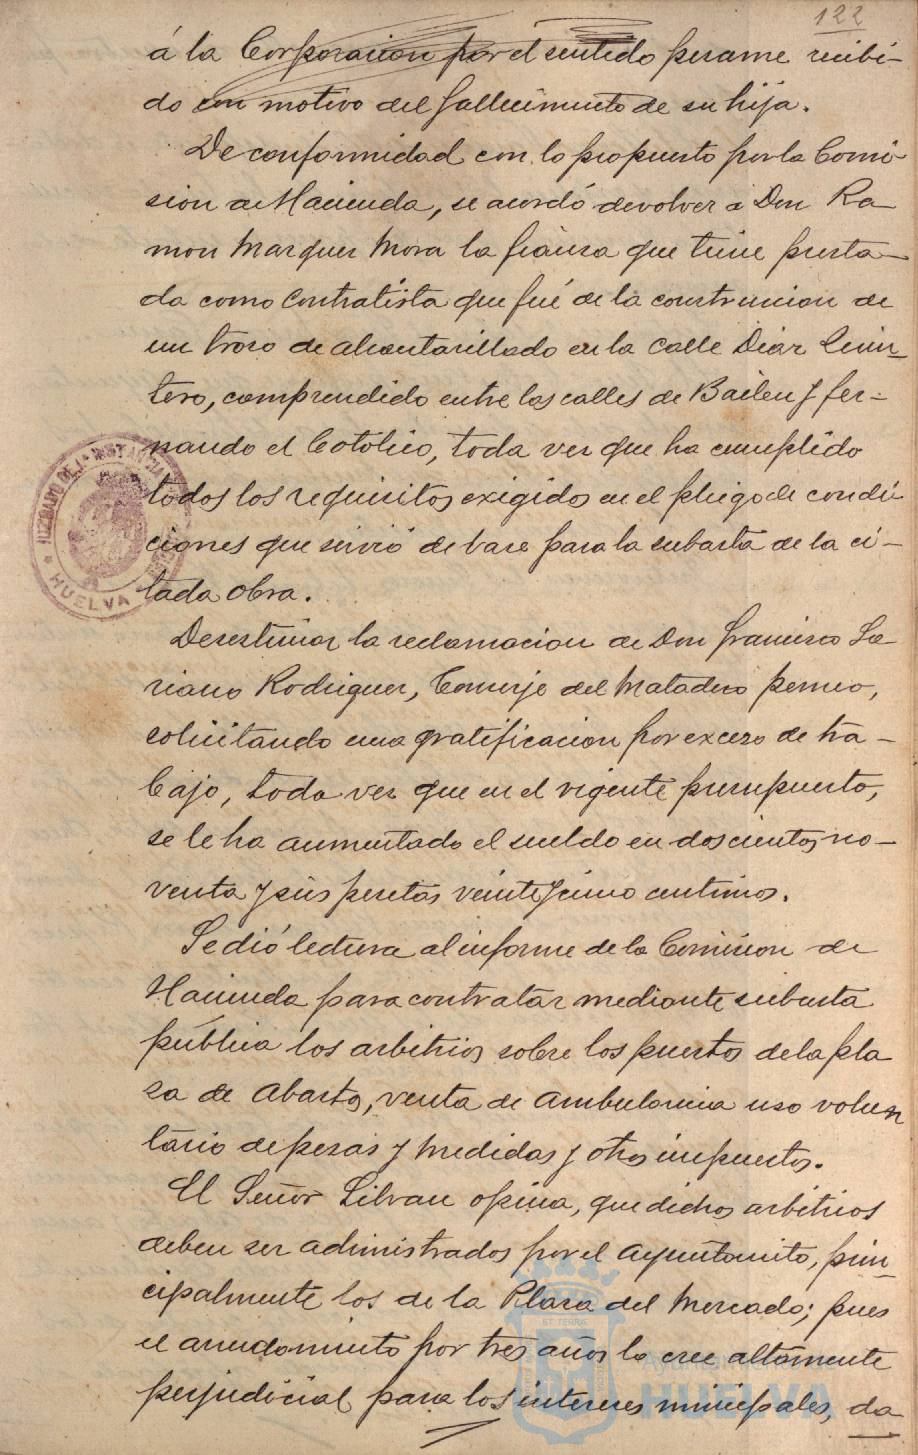 122
á la Corporacion por el sentido pesame recibi-
do con motivo del fallecimiento de su hija.
De conformidad con lo propuesto por la Comi-
sion de Hacienda, se acordó devolver a Don Ra-
mon Marquez Mora la fianza que tiene presta-
da como contratista que fué de la construccion de
un trozo de alcantarillado en la calle Diaz Quin-
tero, comprendido entre las calles de Bailen y Fer-
nando el Catolico, toda vez que ha cumplido
todos los requisitos exigidos en el pliego de condi-
ciones que sirvió de base para la subasta de la ci-
tada obra.
Desestimar la reclamacion de Don Francisco So-
riano Rodriguez, Conserje del Matadero
solicitando una gratificacion por exceso de tra-
bajo, toda vez que en el vigente presupuesto,
se le ha aumentado el sueldo en doscientos no-
venta y seis pesetas veinte y cinco centimos.
Se dió lectura al informe de la Comision de
Hacienda para contratar mediante subasta
pública los arbitrios sobre los puestos de la pla
za de Abastos, venta de ambulancia uso volun
tario de pesas y medidas y otros impuestos.
El Señor Silvan opina, que dichos arbitrios
deben ser administrados por el Ayuntamito, prin-
cipalmente los de la Plaza del Mercado; pues
el arrendamiento por tres años lo cree altamente
perjudicial para los intereses minicipales, da
JUZGADO DE 1ª INSTANCIA
HUELVA
Ayuntamiento
HUELVA